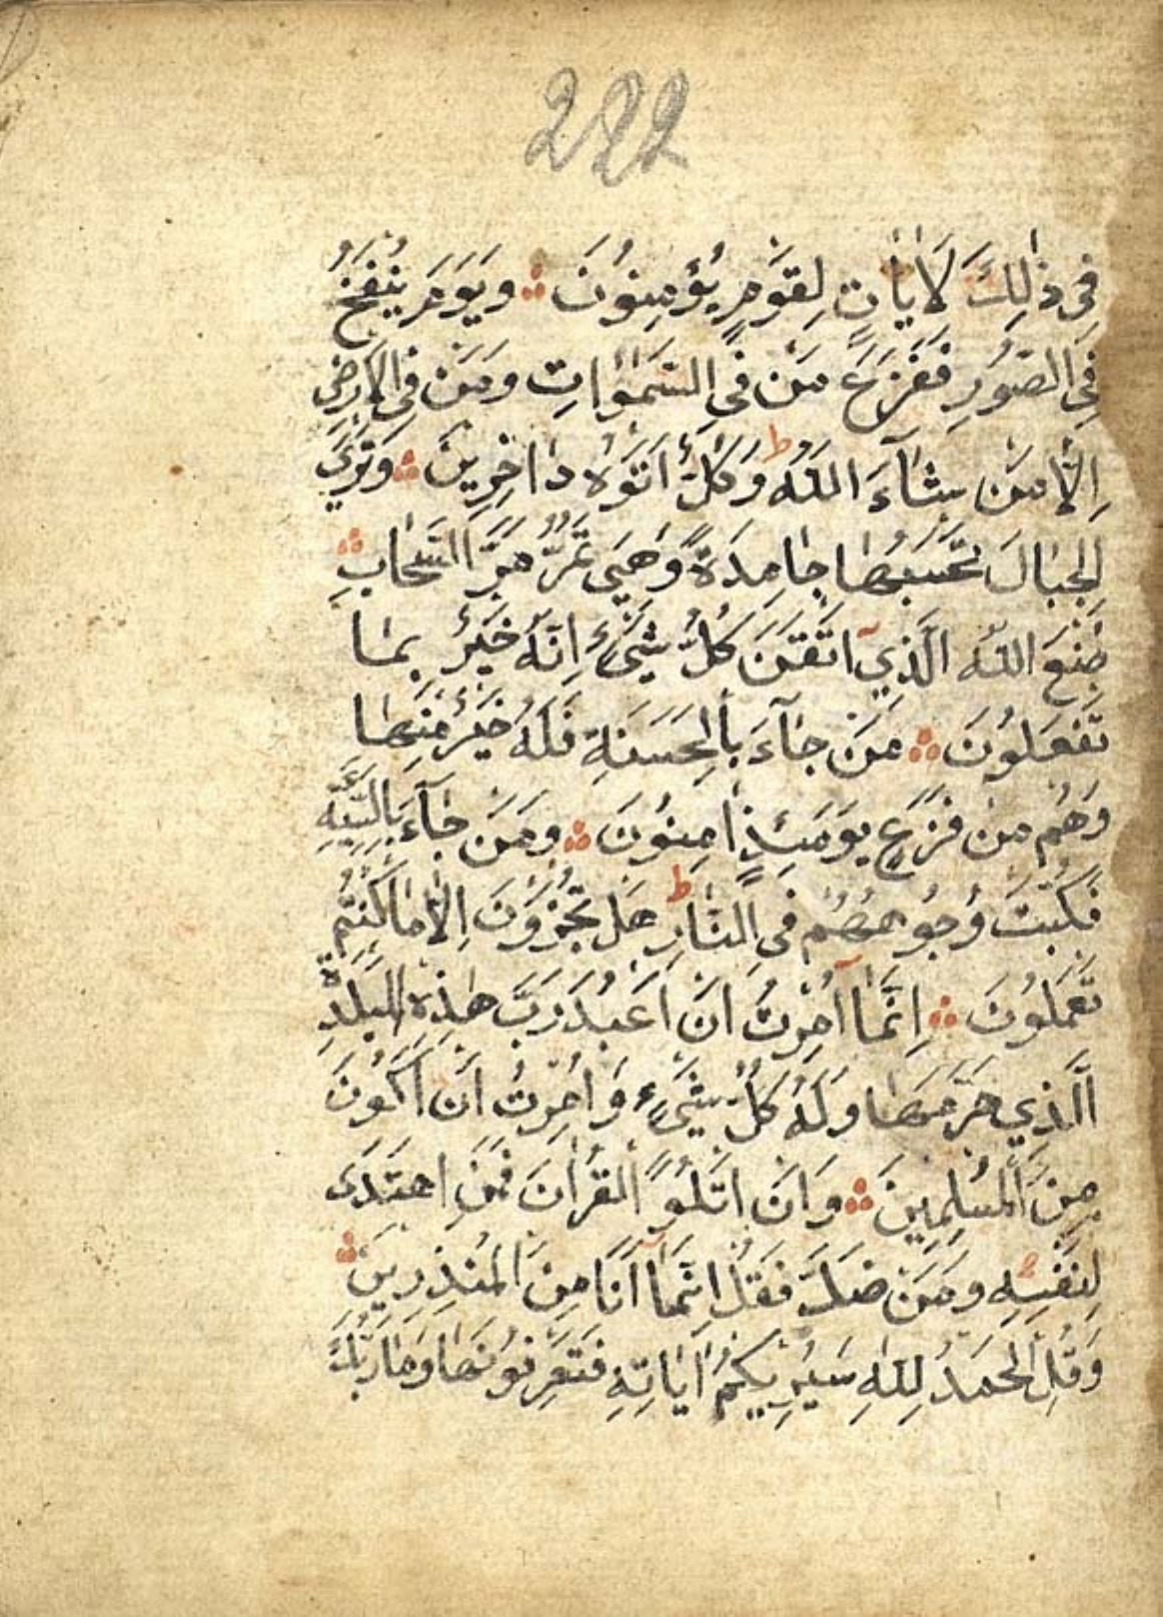 222
فِي ذٰلِكَ لَاٰيَاتٍ لِقَوْمٍ يُؤْمِنُونَ ۞ وَيَوْمَ يُنْفَخُ
فِي الصُّورِ فَفَزِعَ مَنْ فِي السَّمٰوَاتِ وَمَنْ فِي الْاَرْضِ
اِلَّا مَنْ شَآءَ اللّٰهُ ط وَكُلٌّ اَتَوْهُ دَاخِرِينَ ۞ وَتَرَى
الْجِبَالَ تَحْسَبُهَا جَامِدَةً وَهِيَ تَمُرُّ مَرَّ السَّحَابِ ۞
صُنْعَ اللّٰهِ الَّذِي اَتْقَنَ كُلَّ شَيْءٍ اِنَّهُ خَبِيرٌ بِمَا
تَفْعَلُونَ ۞ مَنْ جَآءَ بِالْحَسَنَةِ فَلَهُ خَيْرٌ مِنْهَا
وَهُمْ مِنْ فَزَعٍ يَوْمَئِذٍ اٰمِنُونَ ۞ وَمَنْ جَآءَ بِالسَّيِّئَةِ
فَكُبَّتْ وُجُوهُهُمْ فِي النَّارِ ط هَلْ تُجْزَوْنَ اِلَّا مَا كُنْتُمْ
تَعْمَلُونَ ۞ اِنَّمَآ اُمِرْتُ اَنْ اَعْبُدَ رَبَّ هٰذِهِ الْبَلْدَةِ
الَّذِي حَرَّمَهَا وَلَهُ كُلُّ شَيْءٍ وَاُمِرْتُ اَنْ اَكُونَ
مِنَ الْمُسْلِمِينَ ۞ وَاَنْ اَتْلُوَ الْقُرْاٰنَ فَمَنِ اهْتَدَى
لِنَفْسِهِ وَمَنْ ضَلَّ فَقُلْ اِنَّمَآ اَنَا مِنَ الْمُنْذِرِينَ ۞
وَقُلِ الْحَمْدُ لِلّٰهِ سَيُرِيكُمْ اٰيَاتِهِ فَتَعْرِفُونَهَا وَمَا رَبُّكَ